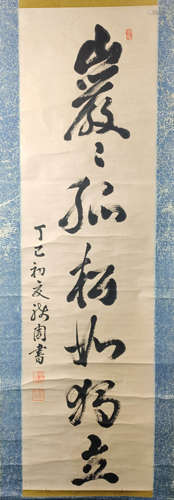 巖〻孤松如獨立
丁巳初夏 書